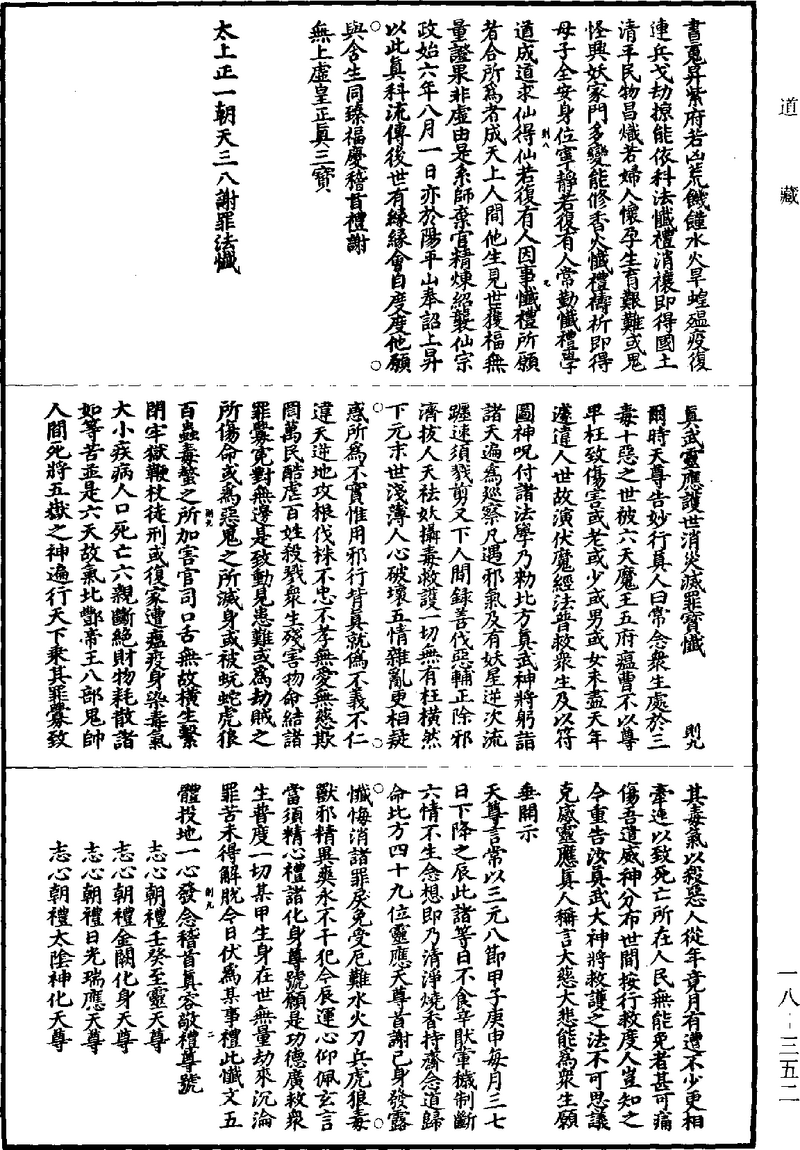 道藏
書冤昇紫府若凶荒饑饉水火旱蝗瘟疫復
連兵戈劫掠能依科法懺禮消禳即得國土
清平民物昌熾若婦人懷孕生育艱難或鬼
怪興妖家門多變能修香火懺禮禱祈即得
母子全安身位寧靜若復有人常勤懺禮學
道成道求仙得仙若復有人因事懺禮所願
則八
者合所為者成天上人間他生見世獲福無
量證果非虛由是系師棄官精煉紹襲仙宗
政始六年八月一日亦於陽平山奉詔上昇
以此真科流傳後世有緣緣會自度度他願
與含生同臻福慶稽首禮謝
無上虛皇正真三寶
太上正一朝天三八謝罪法懺
真武靈應護世消災滅罪寶懺
則九
爾時天尊告妙行真人曰常念衆生處於三
毒十惡之世被六天魔王五府瘟曹不以尊
卑枉致傷害或老或少或男或女未盡天年
遽遺人世故演伏魔經法普救衆生及以符
圖神呪付諸法學乃勑北方真武神將躬詣
諸天遍為巡察凡遇邪氣及有妖星逆次流
躔速須戮剪又下人間錄善伐惡輔正除邪
濟拔人天祛妖攝毒救護一切無有枉橫然
下元末世淺薄人心破壞五情雜亂更相疑
惑所為不實惟用邪行背真就偽不義不仁
違天逆地攻根伐株不忠不孝無愛無慈欺
罔萬民酷虐百姓殺戮衆生殘害物命結諸
罪釁寃對無邊是致動見患難或為劫賊之
所傷命或為惡鬼之所滅身或被蚖蛇虎狼
則九
百蟲毒螫之所加害官司口舌無故橫生繫
閉牢獄鞭杖徒刑或復家遭瘟疫身染毒氣
大小疾病人口死亡六親斷絕財物耗散諸
如等苦並是六天故氣北酆帝王八部鬼帥
人間死將五嶽之神遍行天下乘其罪釁致
其毒氣以殺惡人從年竟月有遭不少更相
牽連以致死亡所在人民無能免者甚可痛
傷吾遣威神分布世間按行救度人豈知之
今重告汝真武大神將救護之法不可思議
克感靈應真人稱言大慈大悲能為衆生願
垂開示
天尊言常以三元八節甲子庚申每月三七
日下降之辰此諸等日不食辛肷葷穢制斷
六情不生念想即乃清淨燒香持齋念道歸
命北方四十九位靈應天尊首謝己身發露
懺悔消諸罪戾免受厄難水火刀兵虎狼毒
獸邪精異爽永不干犯今辰運心仰佩玄言
當須精心禮諸化身尊號願是功德廣救衆
生普度一切某甲生身在世無量劫來沉淪
罪苦未得解脫今日伏為某事禮此懺文五
則九
體投地一心發念稽首真容敬禮尊號
志心朝禮壬癸至靈天尊
志心朝禮金闕化身天尊
志心朝禮日光瑞應天尊
志心朝禮太陰神化天尊
一八-三五二